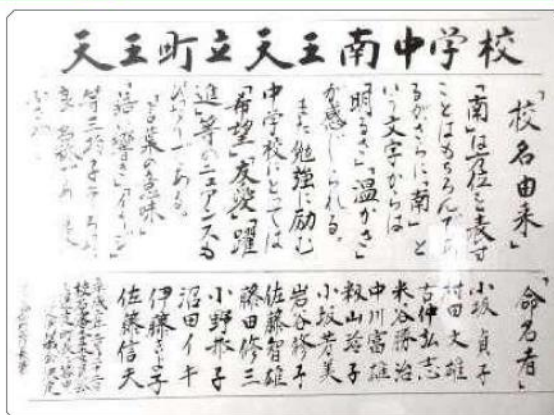 天王町立天王南中学校
「校名由来」
「南」は方位を表す
ことはもちろんであ
るがさらに「南」と
いう文字からは
「明るさ」「温かさ」
が感じられる。
また勉強に励む
中学校にとっては
「希望」「友愛」「躍
進」等のニュアンスも
ぴったりである。
「言葉の意味」
「語の響き」「イメージ」
「命名者」
小坂貞子
村田文雄
古仲弘志
米谷勝治
中川富雄
小坂芳美
岩谷修子
佐藤智雄
藤田修三
沼田イキ
佐藤信天